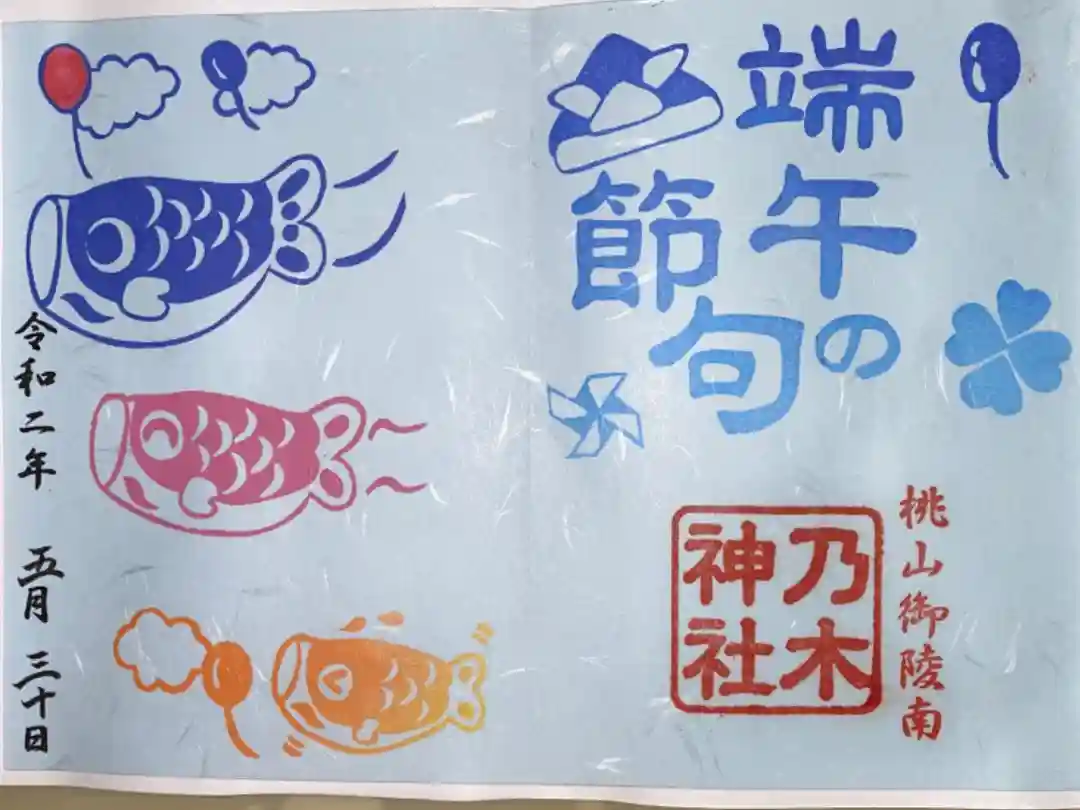 端午の
節句
桃山御陵南
乃木
神社
令和二年 五月 三十日